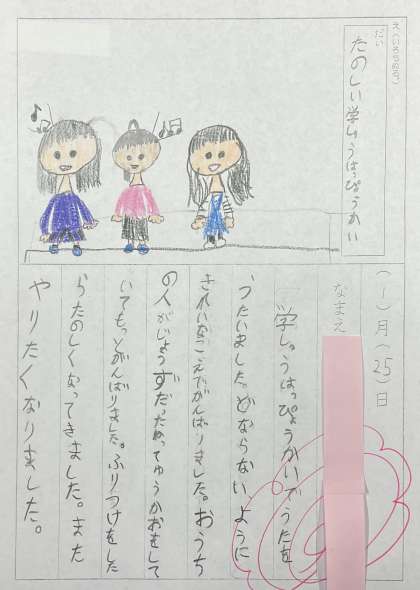 え(いろをぬろう)
だい
たのしい学しゅうはっぴょうかい
(1)月(25)日
なまえ
学しゅうはっぴょうかいでうたを
うたいました。どならないように
きれいなこえでがんばりました。おうち
の人がじょうずだったねってゆうかおをして
いてもっとがんばりました。ふりつけをした
らたのしくなってきました。また
やりたくなりました。